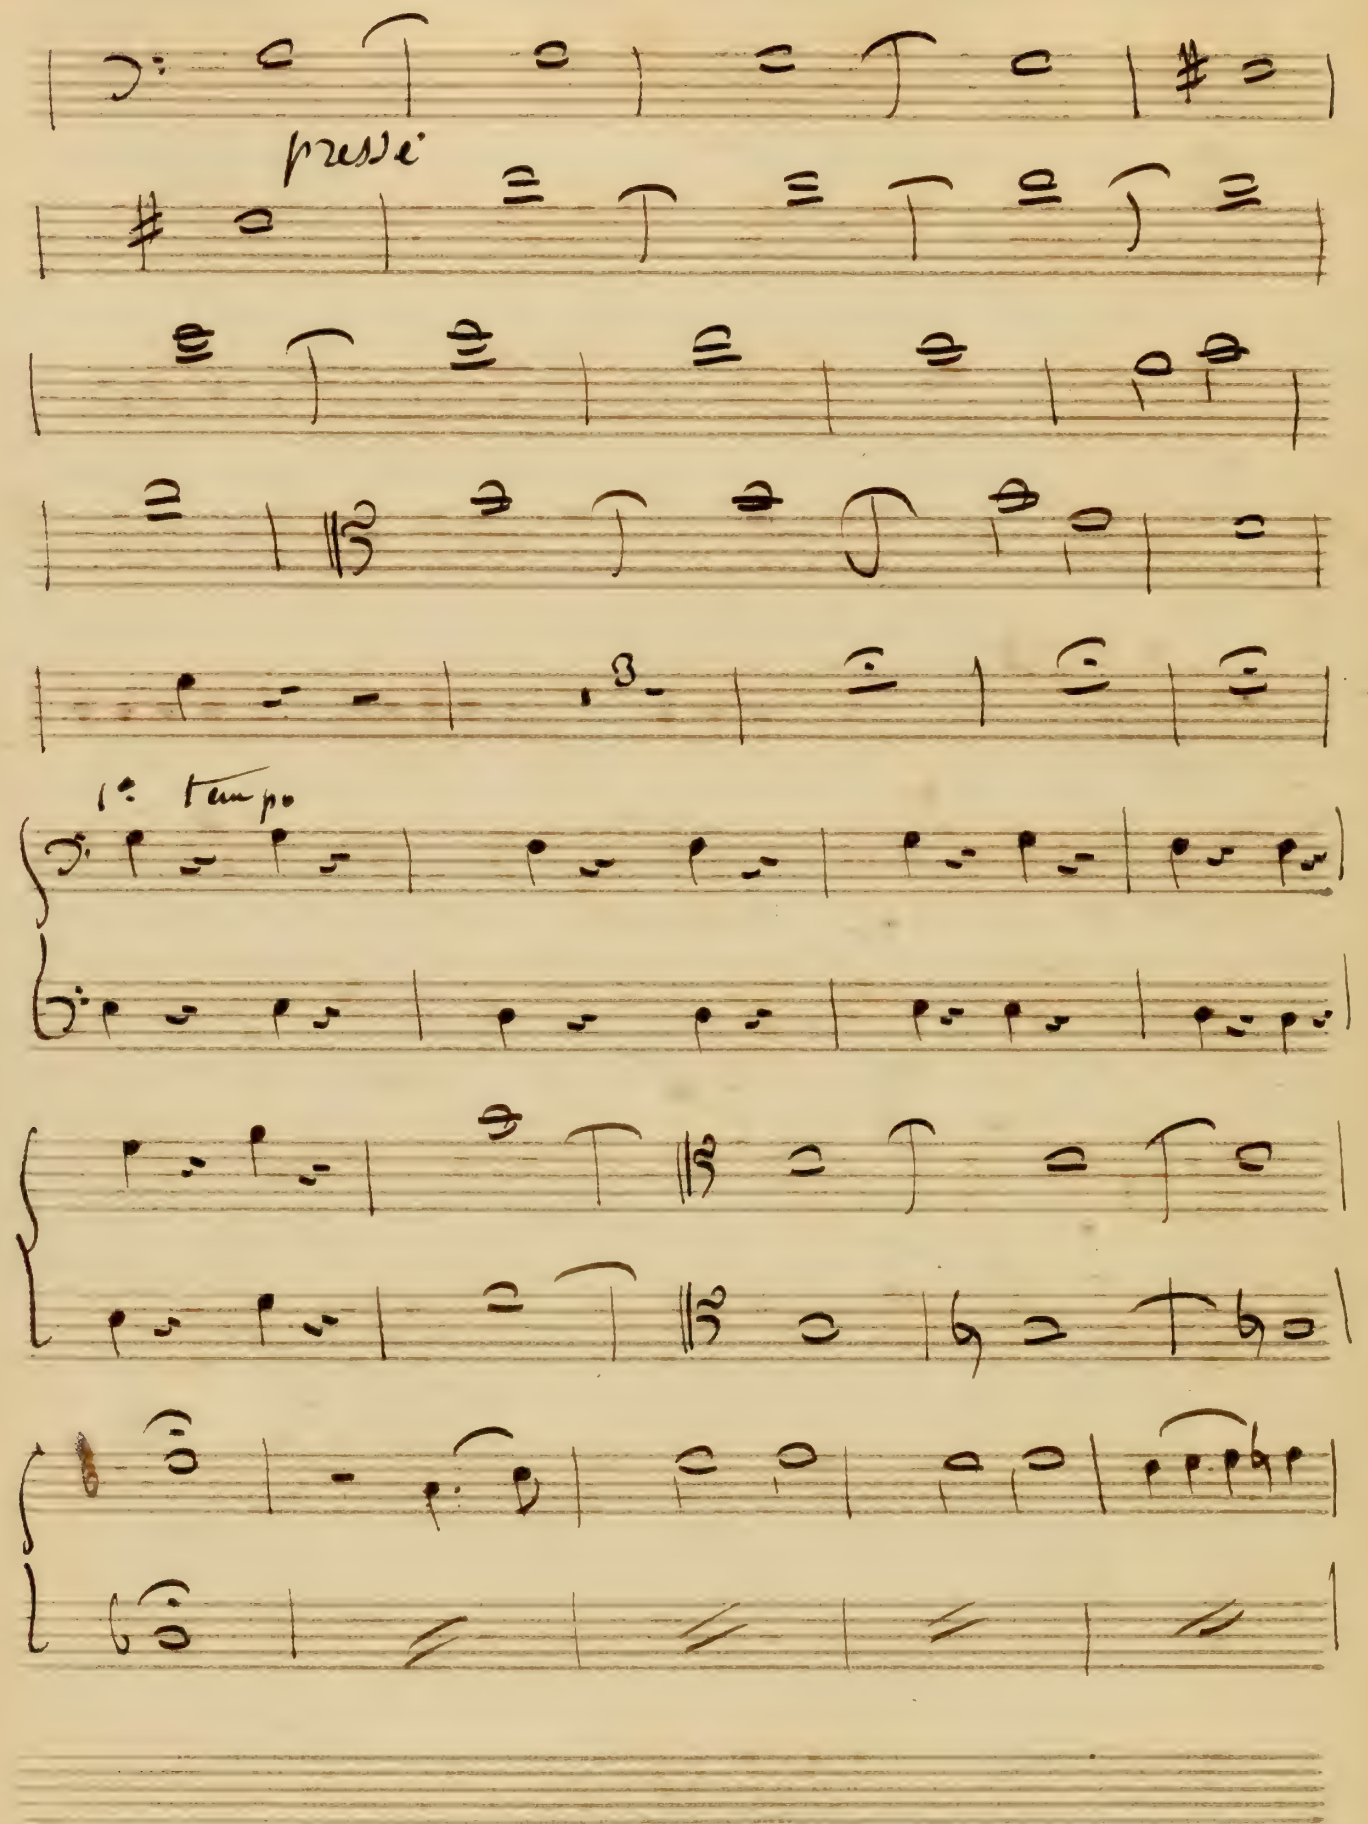 pressé
3
1º tempo